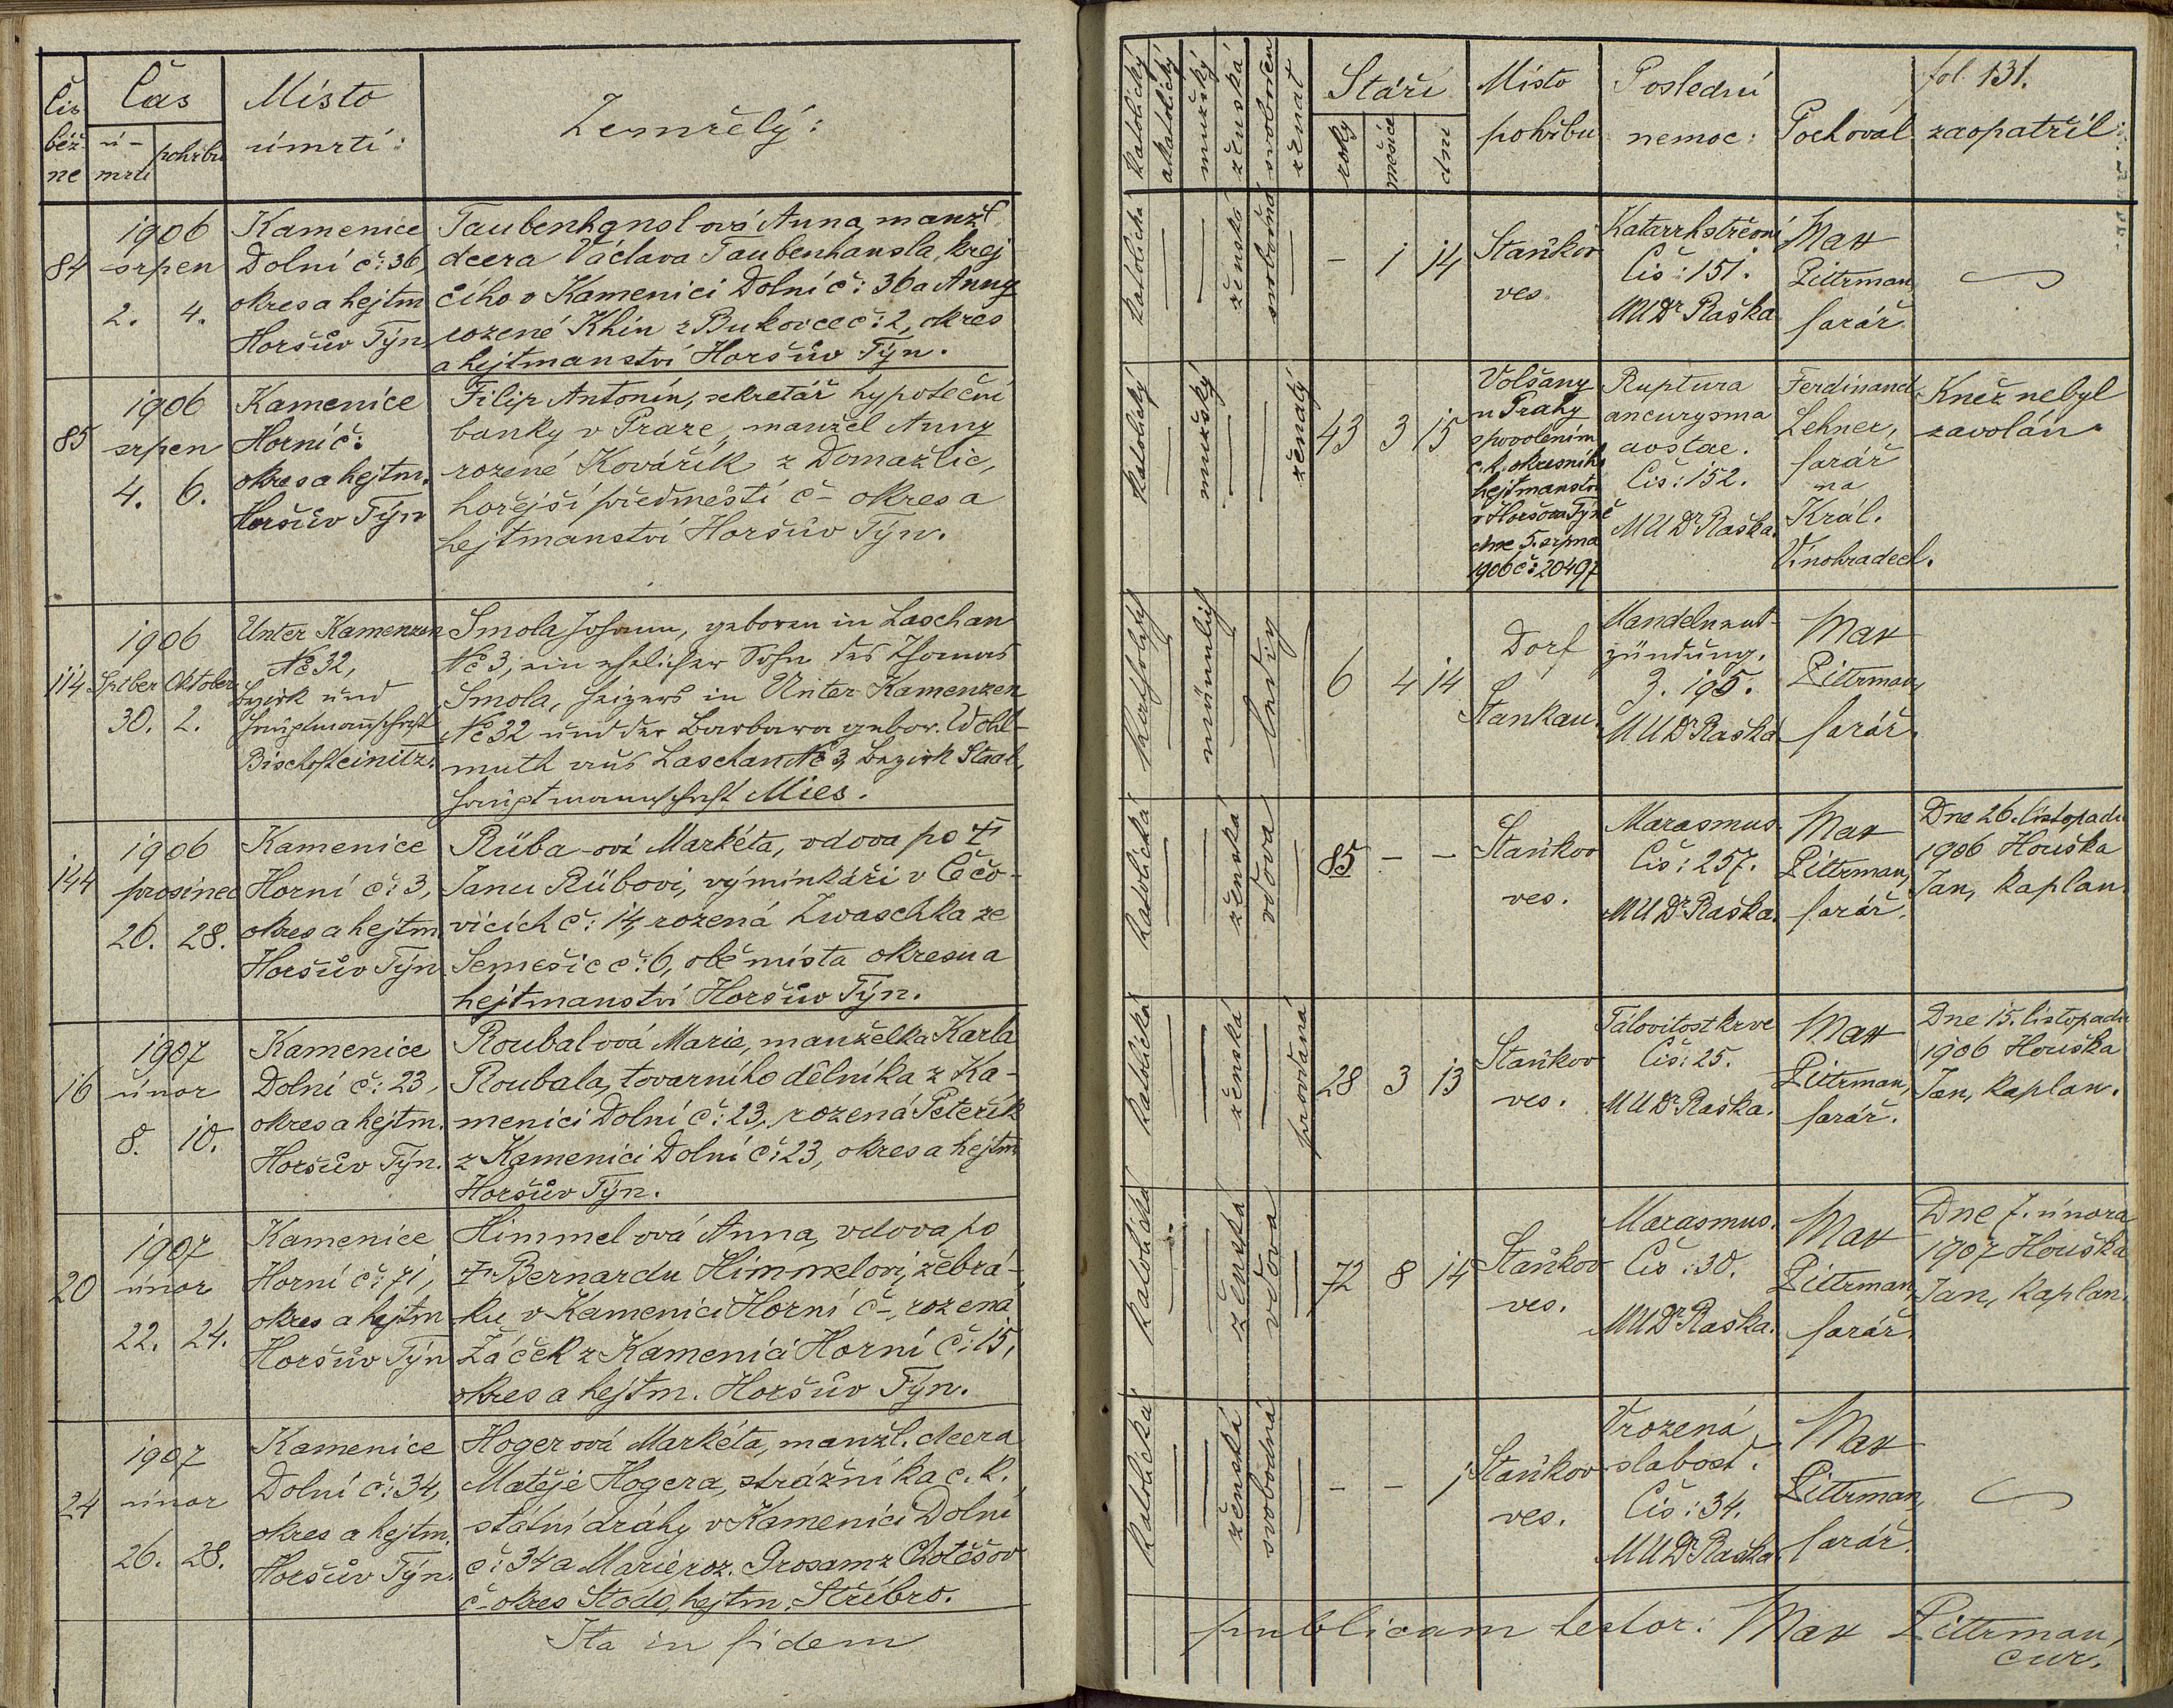 Čís
běž
ne
Čas
ú-
mrtí
pohřbu
Místo
úmrtí:
Zemřelý:
84
1906
srpen
2. 4.
Kamenice
Dolní č: 36,
okres a hejtm
Horšův Týn
Taubenhanslová Anna, manž.
dcera Václava Taubenhansla, krej
čího v Kamenici Dolní č: 36 a Anny
rozené Khin z Bukovce č: 2, okres
a hejtmanství Horšův Týn.
85
1906
srpen
4. 6.
Kamenice
Horní č:
okres a hejtm.
Horšův Týn
Filip Antonín, sekretář hypoteční
banky v Praze, manžel Anny
rozené Kovářík z Domažlic,
hořejší předměstí č- okres a
hejtmanství Horšův Týn.
114
1906
Sptber Oktober
30. 2.
Unter Kamenzen
№ 32,
Bezirk und
Hauptmannschaft
Bischofteinitz.
Smola Johann, geboren in Laschan
№ 3, ein ehelicher Sohn des Thomas
Smola, Heizers in Unter Kamenzen
№ 32 und der Barbara gebor. Wohl-
muth aus Laschan № 3, Bezirk Staab,
Hauptmannschaft Mies.
144
1906
prosinec
26. 28.
Kamenice
Horní č: 3,
okres a hejtm.
Horšův Týn
Rüba-ová Markéta, vdova po †
Janu Rübovi, výminkáři v Čečo-
vicích č: 14, rozená Zwaschka ze
Semešic č: 6, obě místa okresu a
hejtmanství Horšův Týn.
16
1907
únor
8. 10.
Kamenice
Dolní č: 23,
okres a hejtm.
Horšův Týn.
Roubalová Marie, manželka Karla
Roubala, tovarního dělníka z Ka-
menici Dolní č: 23, rozená Peteřík
z Kamenici Dolní č: 23, okres a hejtm
Horšův Týn.
20
1907
únor
22. 24.
Kamenice
Horní č: 71,
okres a hejtm
Horšův Týn
Himmelová Anna, vdova po
† Bernardu Himmelovi, žebrá-
ku v Kamenici Horní č-, rozená
Žáček z Kamenici Horní č: 15,
okres a hejtm. Horšův Týn.
24
1907
únor
26. 28.
Kamenice
Dolní č: 34,
okres a hejtm.
Horšův Týn.
Hogerová Markéta, manžl. dcera
Matěje Hogera, strážníka c. k.
státní dráhy v Kamenici Dolní
č: 34 a Marie roz. Prosam z Chotěšov
č- okres Stodo, hejtm. Stříbro.
Ita in fidem
katolický
akatolický
mužský
ženská
svobodný
ženat
Stáří
roky
měsíce
dní
Místo
pohřbu
Poslední
nemoc:
Pochoval
fol. 131.
zaopatřil:
katolická
ženská
svobodná
- 1 14
Staňkov
ves.
Katarrh střevní
Čís: 151.
MUDr Raška
Max
Pittrman,
farář.
katolický
mužský
ženatý
43 3 15
Volšany
u Prahy
s povolením
c. k. okresního
hejtmanství
v Horšova Týně
dne 5. srpna
1906 č: 20497
Ruptura
aneurysma
aostae.
Čís: 152.
MUDr Raška.
Ferdinand
Lehner,
farář
na
Král.
Vinohradech.
Kněz nebyl
zavolán.
katholisch
männlich
ledig
6 4 14
Dorf
Stankau.
Mandelnent-
zündung.
Z. 195.
MUDr Raška
Max
Pittrman,
farář.
katolická
ženská
vdova
85 - -
Staňkov
ves.
Marasmus.
Čís: 257.
MUDr Raška.
Max
Pittrman,
farář.
Dne 26. listopadu
1906 Houška
Jan, kaplan
katolická
ženská
provdaná
28 3 13
Staňkov
ves.
Tálovitost krve
Čís: 25.
MUDr Raška.
Max
Pittrman,
farář.
Dne 15. listopadu
1906 Houška
Jan, kaplan.
katolická
ženská
vdova
72 8 14
Staňkov
ves.
Marasmus.
Čís: 30.
MUDr Raška.
Max
Pittrman,
farář.
Dne 7. února
1907 Houška
Jan, kaplan.
katolická
ženská
svobodná
- - 1
Staňkov
ves.
Vrozená
slabost.
Čís: 34.
MUDr Raška
Max
Pittrman,
farář.
publicam testor: Max Pittrman,
cur.